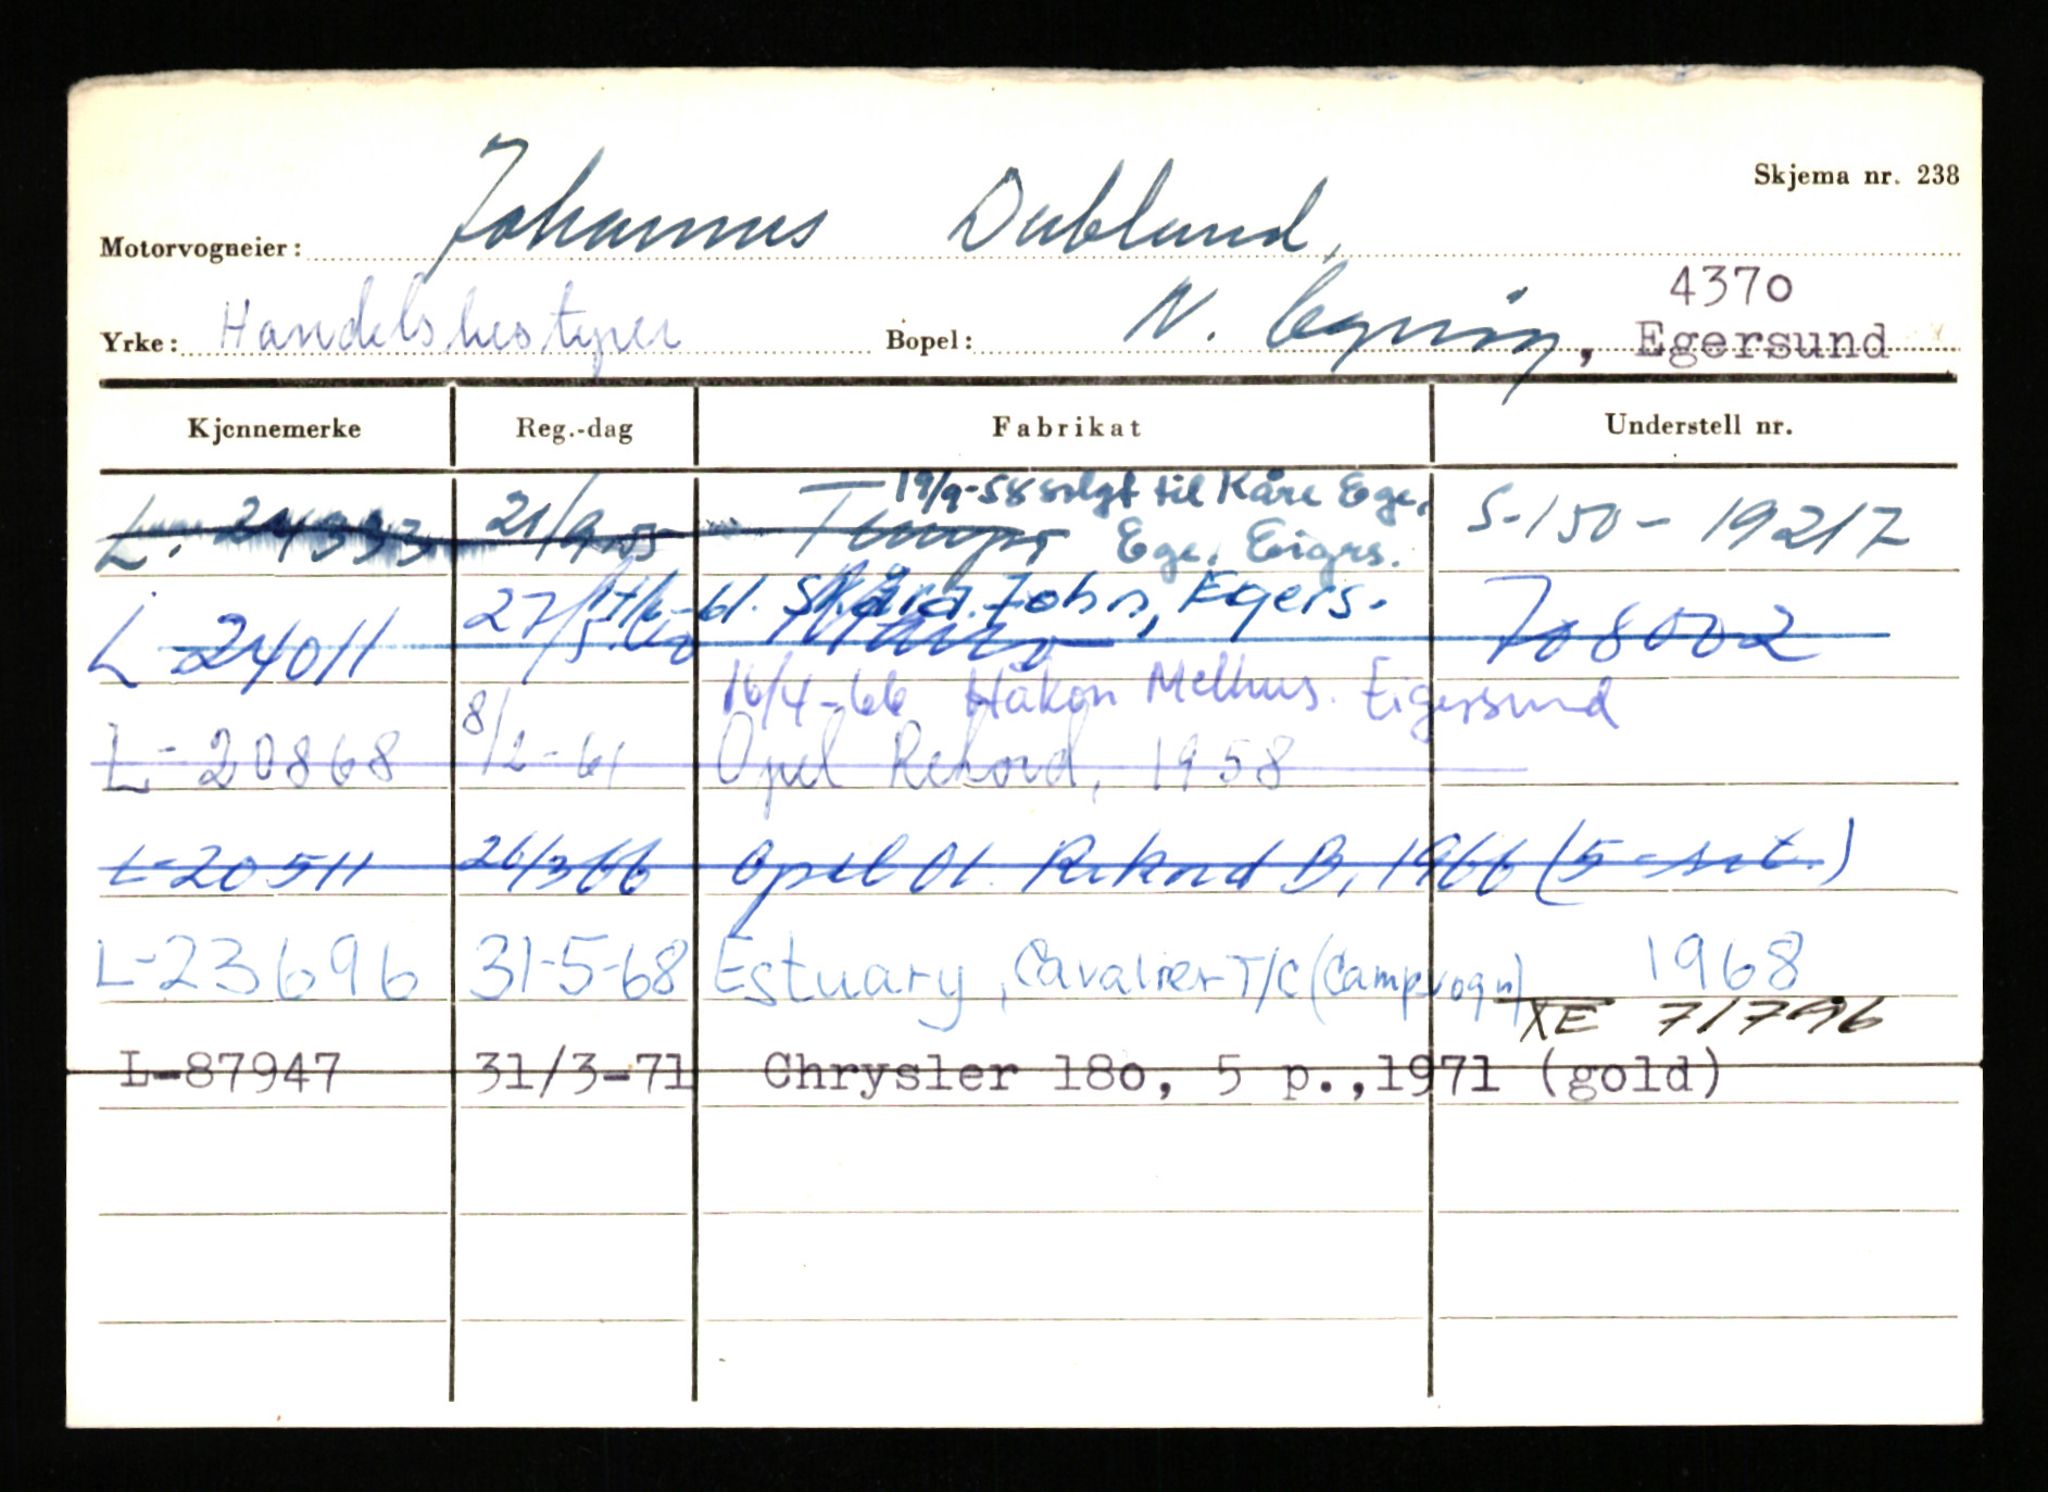 Skjema nr. 238
Motorvogneier: Johannes Dublund,
Yrke: Handelsbestyrer Bopel: N. , 4370 Egersund
Kjennemerke Reg.-dag Fabrikat Understell nr.
19/9-58 solgt til Kåre Ege,
L. 24393 21/9.55 Tempo Ege, Eigrs. S-150-19217
17/6-61. Skåra John, Egers.
L-24011 27/5. 708002
16/4-66 Håkon Melhus. Eigersund
L-20868 8/2-61 Opel Rekord, 1958
L-20511 26/3 66 Opel Ol. Rekord B, 1966 (5-set.)
L-23696 31-5-68 Estuary, Cavalier T/C (Campvogn) 1968
XE 71796
L-87947 31/3-71 Chrysler 180, 5 p., 1971 (gold)